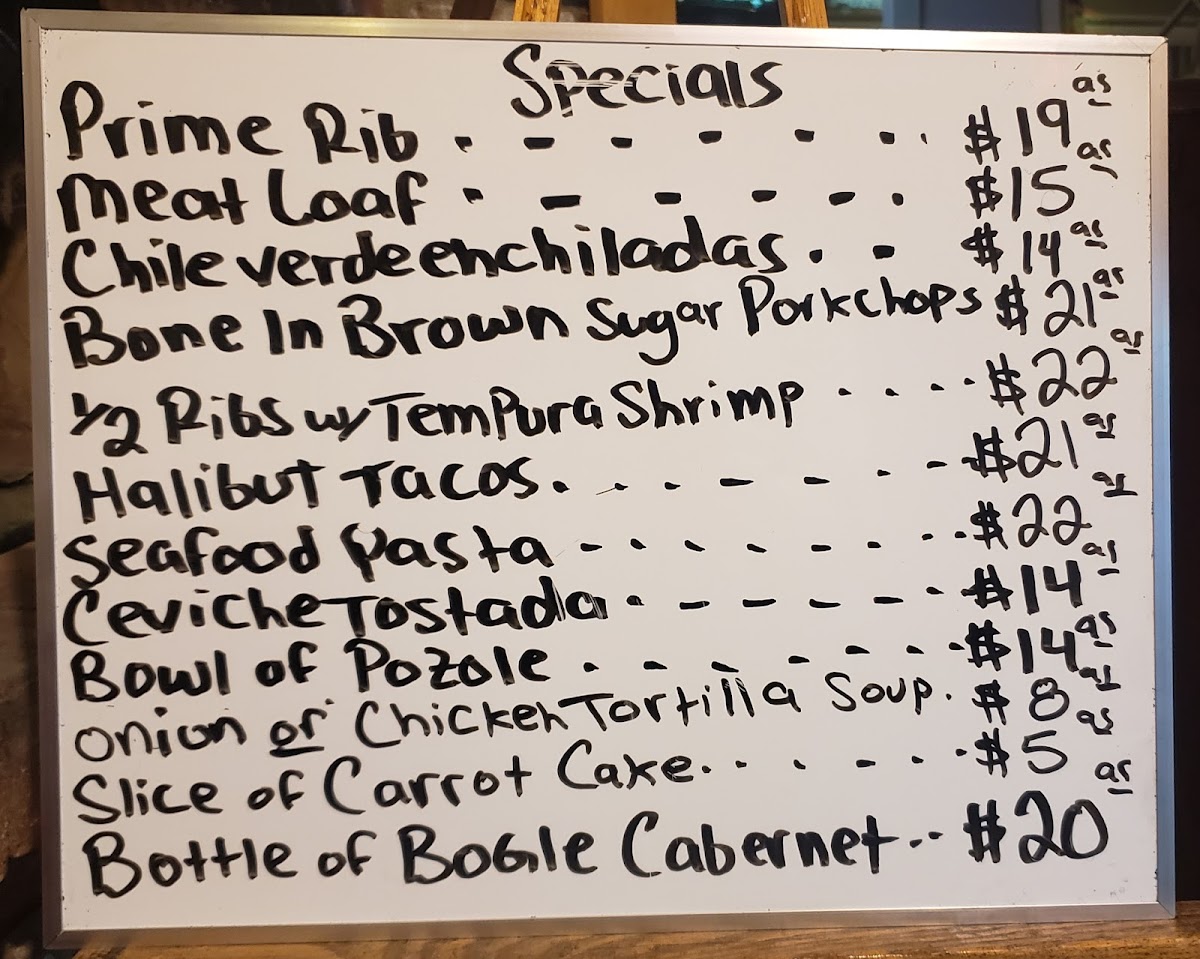 Specials
Prime Rib . - - - - - . $19 95
Meat Loaf . - - - - . $15 95
Chile verde enchiladas . - $14 95
Bone In Brown Sugar Porkchops $21 95
1/2 Ribs w/ Tempura Shrimp . . . . $22 95
Halibut Tacos . . - - - - $21 95
Seafood Pasta - - - - - - - . . $22 95
Ceviche Tostada . - - - - - $14 95
Bowl of Pozole . - - - - - . $14 95
Onion or Chicken Tortilla Soup . $8 95
Slice of Carrot Cake . . . - - . $5 95
Bottle of Bogle Cabernet . . $20 95